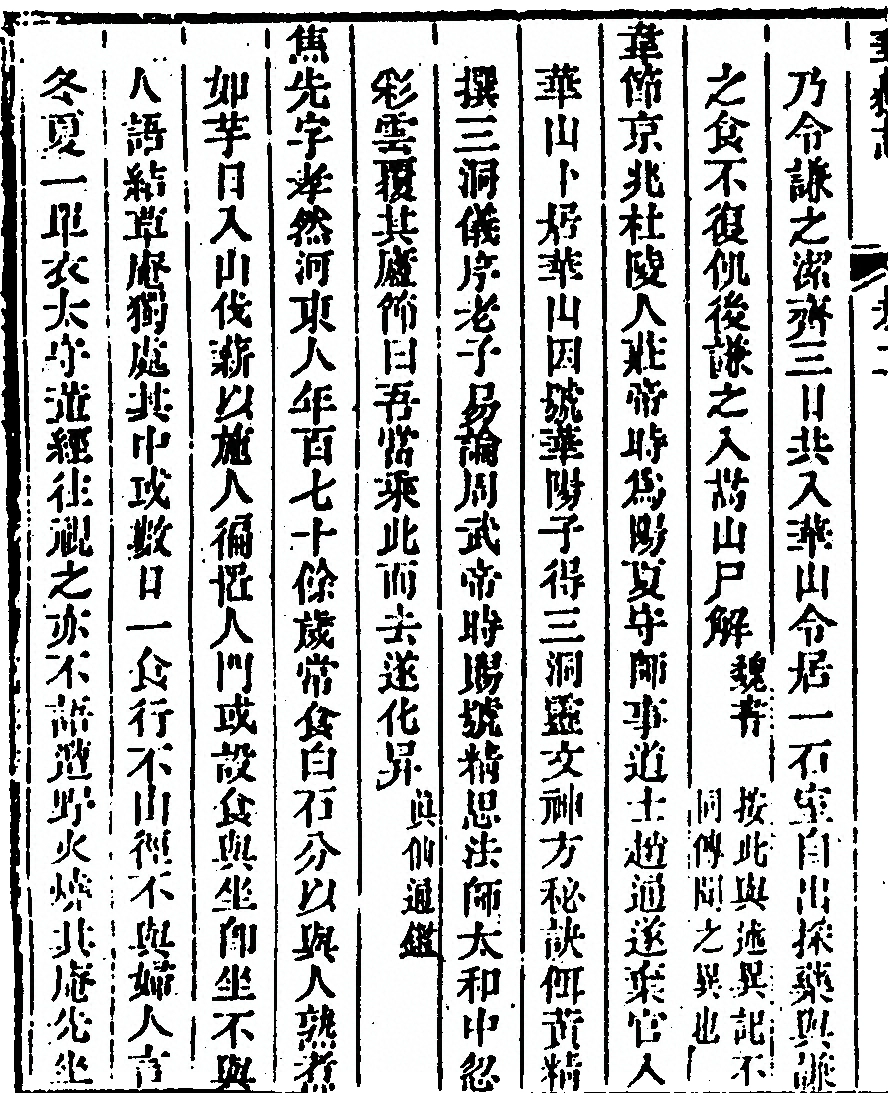 乃令謙之潔齋三日共入華山令居一石室自出採藥與謙
之食不復飢後謙之入嵩山尸解魏書按此與述異記不同傳聞之異也
韋節京兆杜陵人莊帝時爲陽夏守師事道士趙通遂棄官入
華山卜居華山因號華陽子得三洞靈文神方秘訣餌黃精
撰三洞儀序老子易論周武帝時賜號精思法師太和中忽
彩雲覆其廬節曰吾當乘此而去遂化昇眞仙通鑑
焦先字孝然河東人年百七十餘歲常食白石分以與人熟煮
如芋日入山伐薪以施人徧怪人門或設食與坐卽坐不與
人語結草庵獨處其中或數日一食行不由徑不與婦人言
冬夏一單衣太守董經往視之亦不語遭野火燒其庵先坐